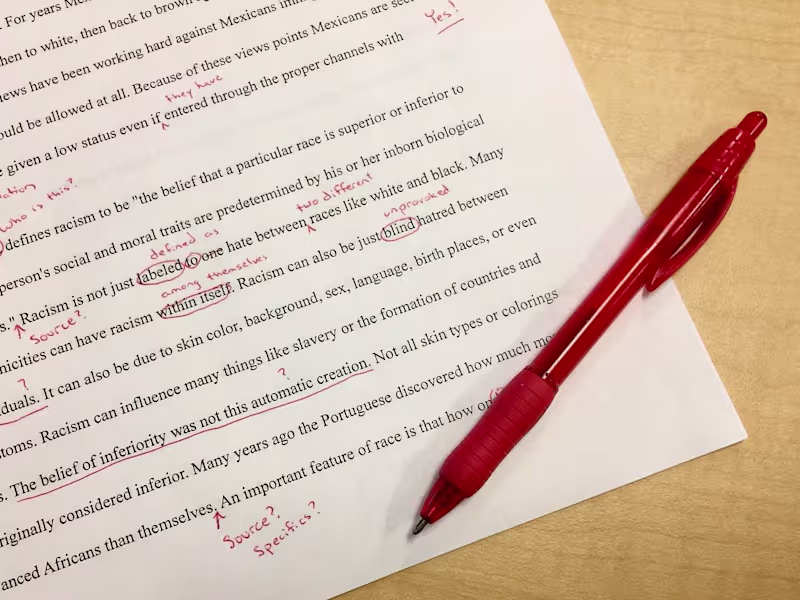 . For years
then to white, then back to brown
Yes!
iews have been working hard against Mexicans
ould be allowed at all. Because of these views points Mexicans are
they have
e given a low status even if entered through the proper channels with
who is this?
defines racism to be "the belief that a particular race is superior or inferior to
two different
person's social and moral traits are predetermined by his or her inborn biological
defined as
unprovoked
s." Racism is not just labeled to one hate between races like white and black. Many
Source?
among themselves
nicities can have racism within itself. Racism can also be just blind hatred between
?
duals. It can also be due to skin color, background, sex, language, birth places, or even
?
stoms. Racism can influence many things like slavery or the formation of countries and
s. The belief of inferiority was not this automatic creation. Not all skin types or colorings
originally considered inferior. Many years ago the Portuguese discovered how much
anced Africans than themselves. An important feature of race is that how
Source?
Specifics?